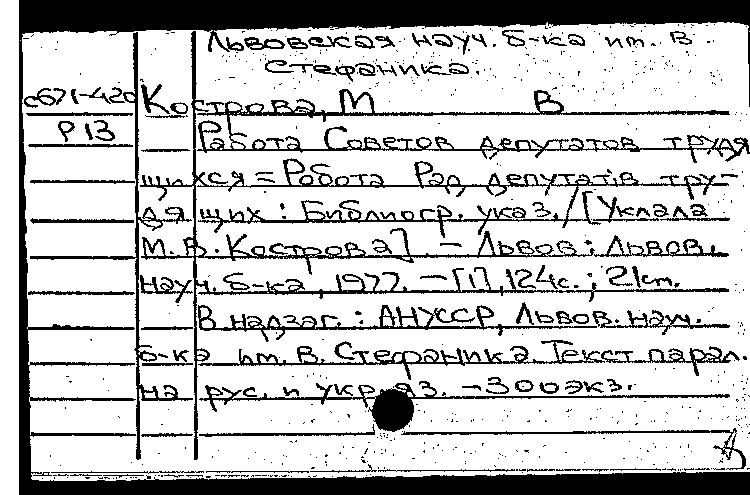 Львовская науч. б-ка им. В.
Стефаника.
с671-420 Кострова, М В
Р13 Работа Советов депутатов трудя
щихся = Робота Рад депутатів тру-
дящих : Библиогр. указ. / [Уклала
М. В. Кострова]. – Львов : Львов.
науч. б-ка, 1977. – [1], 124с. ; 21см.
В надзаг. : АНУССР, Львов. науч.
б-ка им. В. Стефаника. Текст парал.
на рус. и укр. яз. – 300экз.